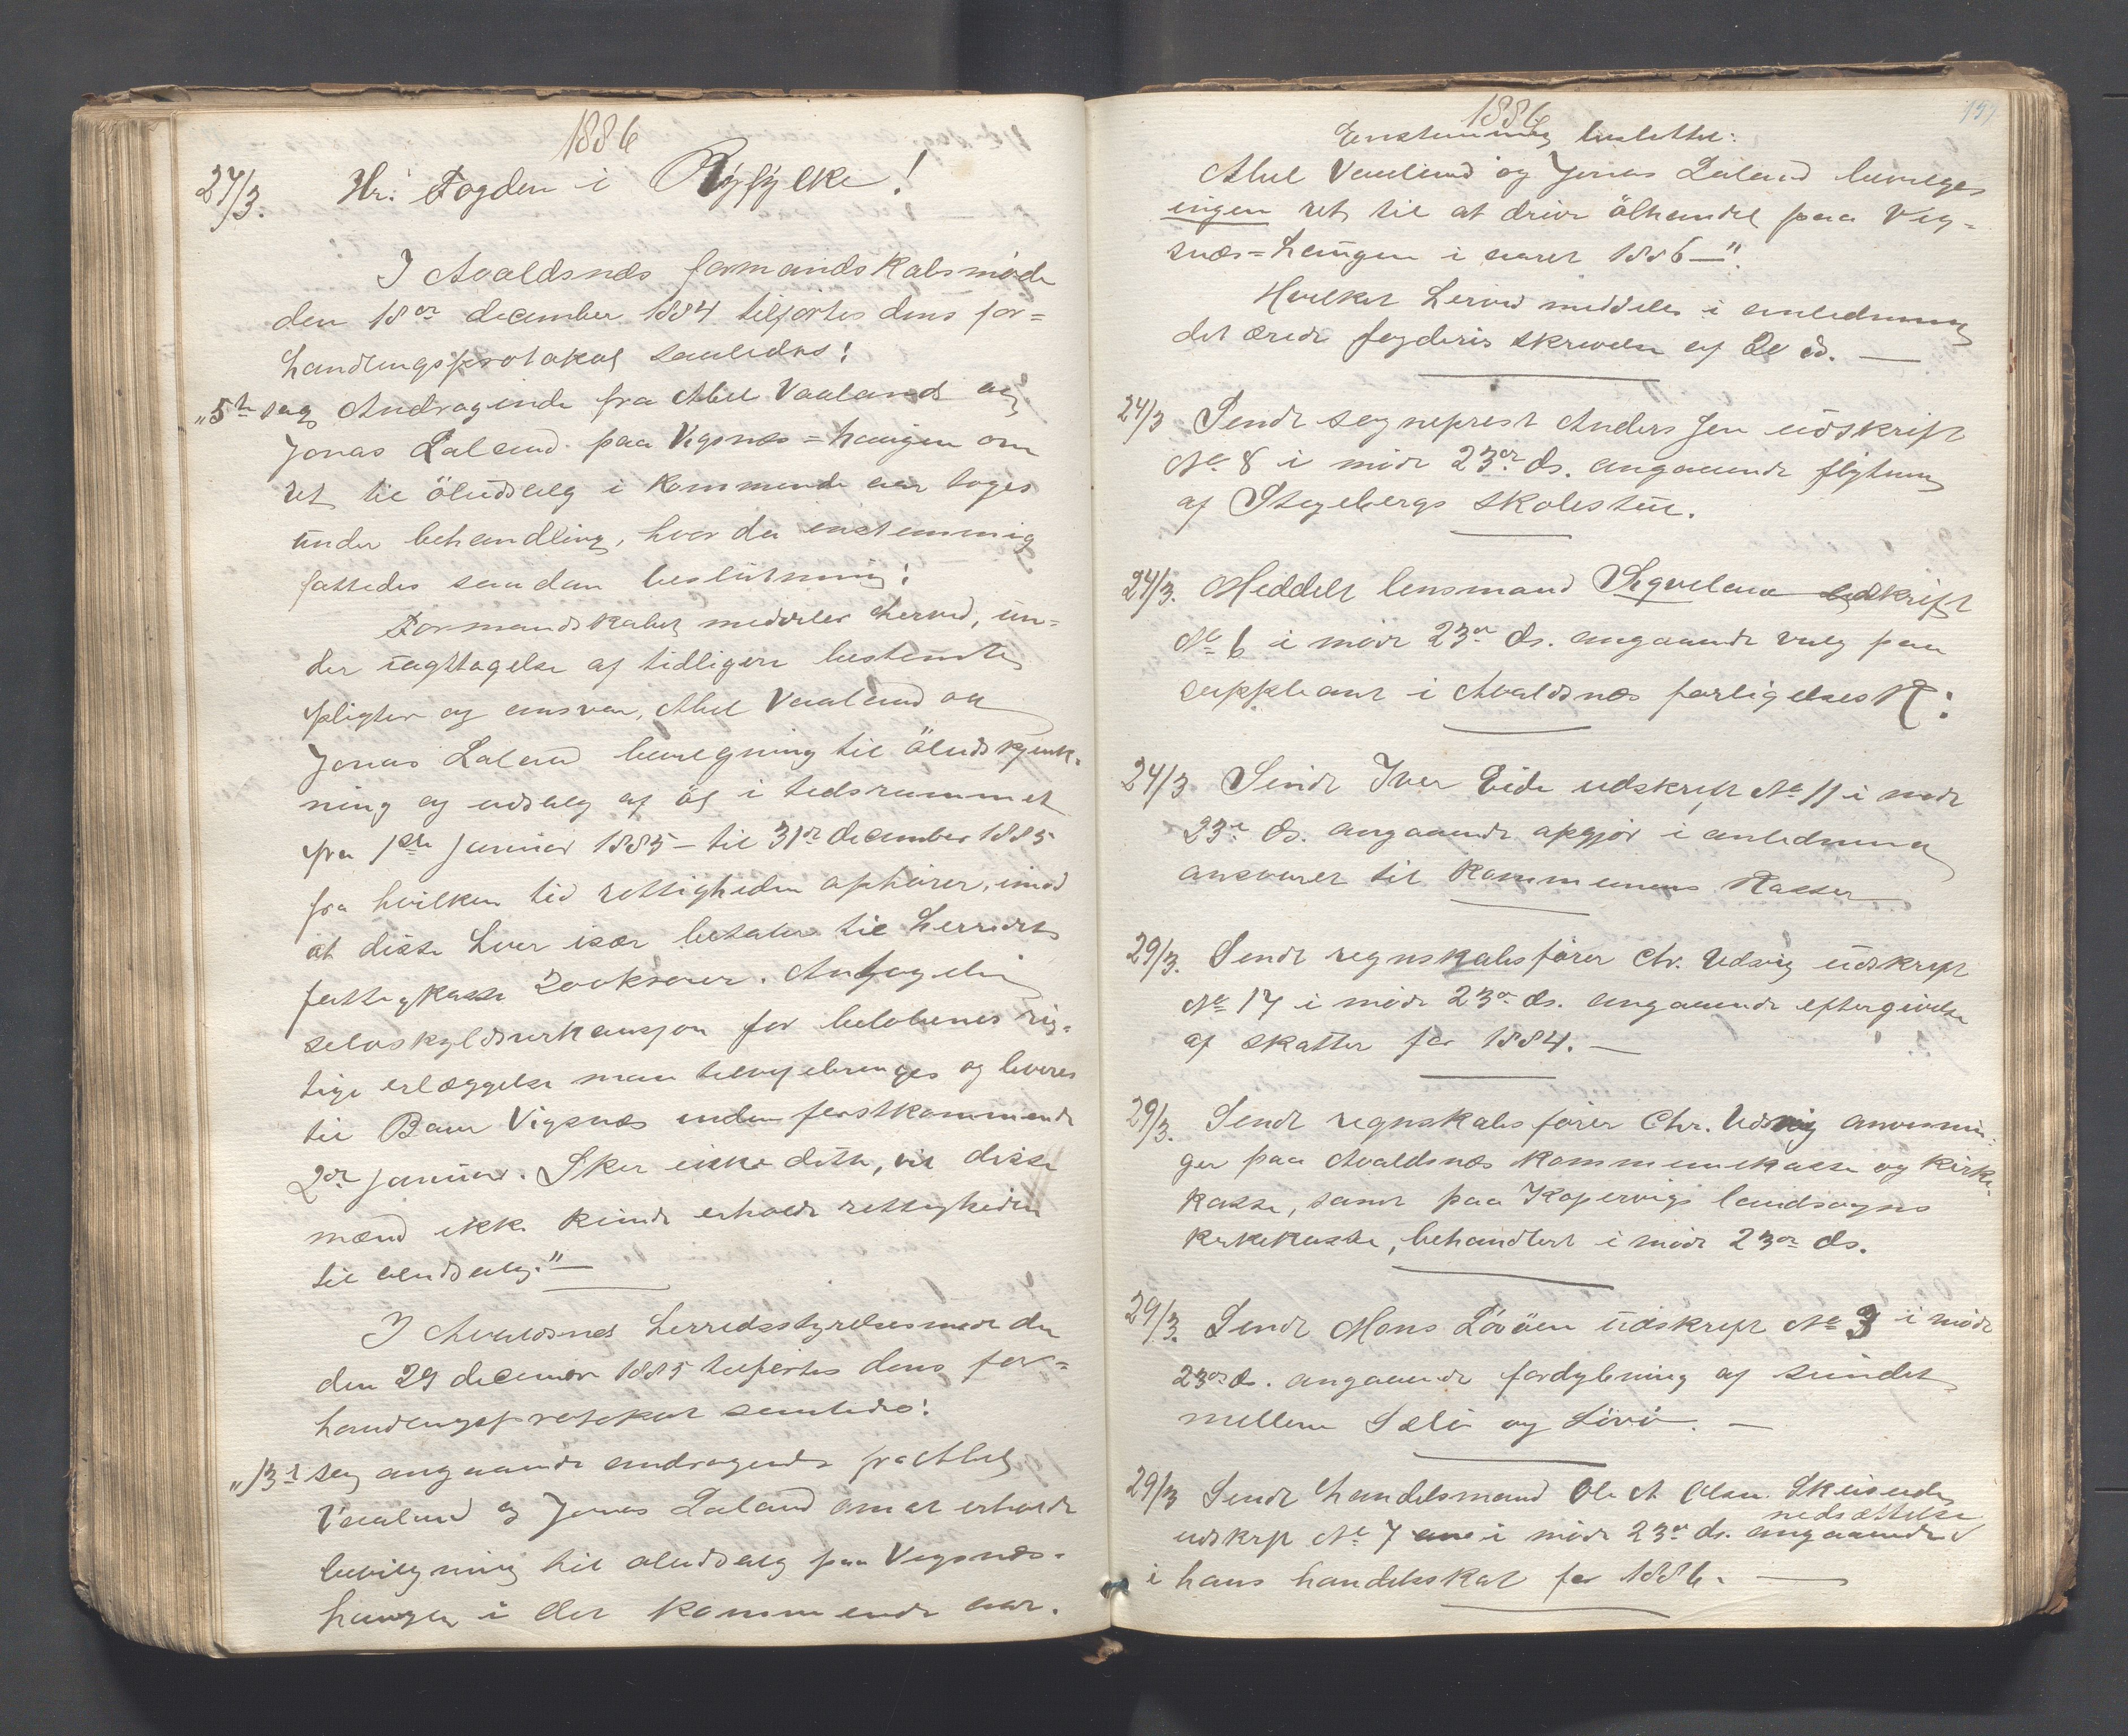 1886
24/3. Hr. Fogden i Ryfylke!
I Avaldsnæs formandskabsmøde
den 18de december 1884 tilførtes dens for=
handlingsprotokol saaledes:
"5te sag Andragende fra Abel Vaaland og
Jonas Laland paa Vigsnæs=haugen om
ret til öludsalg i kommende aar toges
under behandling, hvor da enstemmig
fattedes saadan beslutning:
Formandskabet meddeler herved, un=
der iagttagelse af tidligere bestemte
pligter og ansvar, Abel Vaaland og
Jonas Laland bevilgning til öludskjænk=
ning og udsalg af öl i tidsrummet
fra 1ste januar 1885 – til 31te december 1885
fra hvilken tid rettigheden ophører, imod
at disse hver især betaler til herredets
fattigkasse 200 kroner. Antagelig
selvskyldnerkausjon for beløbenes rig=
tige erlæggelse maa tilveiebringes og leveres
til Baun Vigsnæs inden førstkommende
2den januar. Sker ikke dette, vil disse
mænd ikke kunde erholde rettigheden
til øludsalg." —
I Avaldsnes herredsstyrelsesmøde den
den 29 december 1885 tilførtes dens for=
handlingsprotokol saaledes:
"13de sag angaaende andragende fra Abel
Vaaland og Jonas Laland om at erholde
bevilgning til øludsalg paa Vigsnæs=
haugen i det kommende aar.
1886
Enstemmig besluttet:
Abel Vaaland og Jonas Laland bevilges
ingen ret til at drive ölhandel paa Vig=
snæs=haugen i aaret 1886 —"
Hvilket herved meddeles i anledning
det ærede fogderis skrivelse af 20 ds. —
24/3 Sendt sogneprest Anders Jen udskrift
No 8 i møde 23de ds. angaaende flytning
af Stegebergs skolestue.
24/3. Meddelt lensmand udskrift
No 6 i møde 23de ds. angaaende valg paa
suppleant i Avaldsnæs forligelsesk:
24/3 Sendt Iver Eide udskrift No 11 i møde
23de ds. angaaende opgjør i anledning
ansvaret til kommunens kasser
29/3. Sendt regnskabsfører Chr. Udvig udskrift
No 17 i møde 23de ds. angaaende eftergivelse
af skatter for 1884. —
29/3. Sendt regnskabsfører Chr. Udvig anvisnin=
ger paa Avaldsnæs kommunekasse og kirke=
kasse, samt paa Kopervigs landsogns
kirkekasse, behandlert i møde 23de ds.
29/3. Sendt Mons Lövöen udskrift No 3 i møde
23de ds. angaaende fordybning af sundet
mellem Sælö og Lövö. —
29/3 Sendt handelsmand Ole A Olsen Skuisudes
nedsættelse
udskrift No 7 i møde 23de ds. angaaende
i hans handelsskat for 1886. —